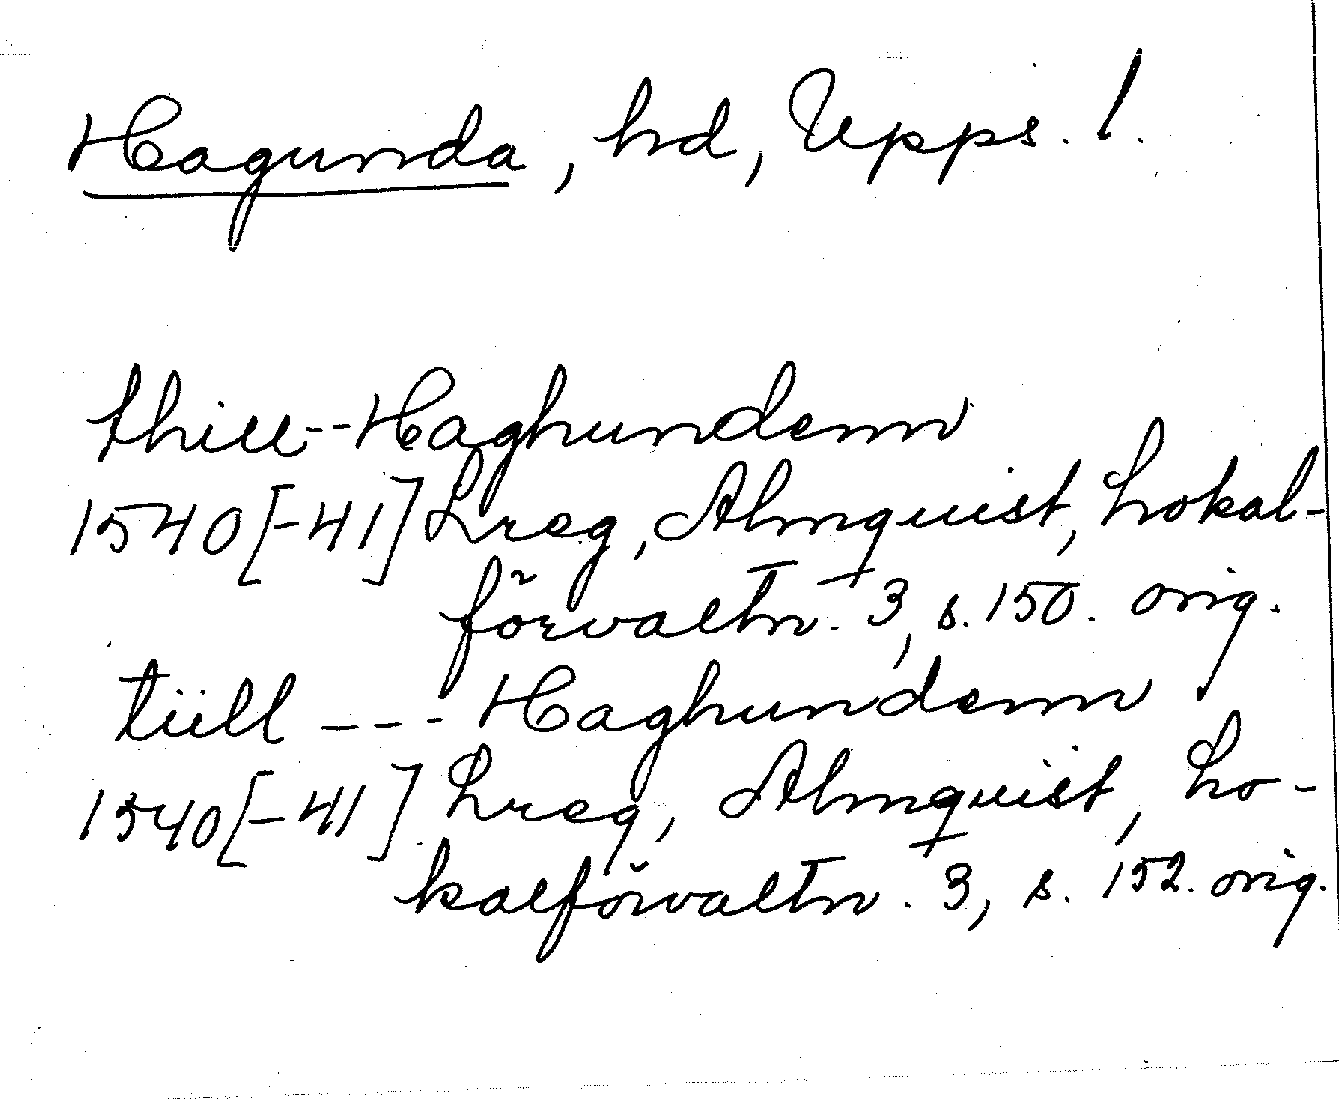 Hagunda, hd, Upps. l.
thill--Haghundenn
1540[-41] Lreg, Almquist, Lokal-
förvaltn. 3, s. 150. orig.
tüll --- Haghundenn
1540[-41] Lreg, Almquist, Lo-
kalförvaltn. 3, s. 152. orig.